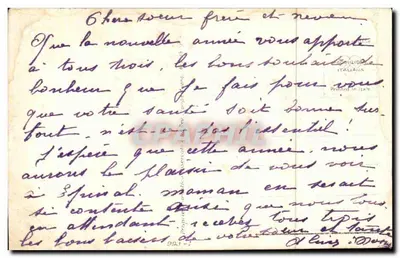 Chère soeur frère et neveu
Que la nouvelle année vous apporte
à tous trois, les bons souhaits de
bonheur que je fais pour vous
que votre santé soit bonne sur
tout, n'est-ce pas l'essentiel!
J'espère que cette année, nous
aurons le plaisir de vous voir
à Epinal, maman en serait
si contente ainsi que nous tous
en attendant recevez tous trois
les bons baisers de votre soeur et tante